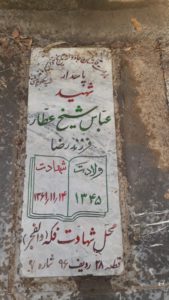 پاسدار
شهید
عباس شیخ عطار
فرزند رضا
ولادت شهادت
۱۳۴۵ ۱۳۶۱/۱۱/۱۴
محل شهادت فکه (والفجر)
قطعه ۲۸ ردیف ۹۶ شماره